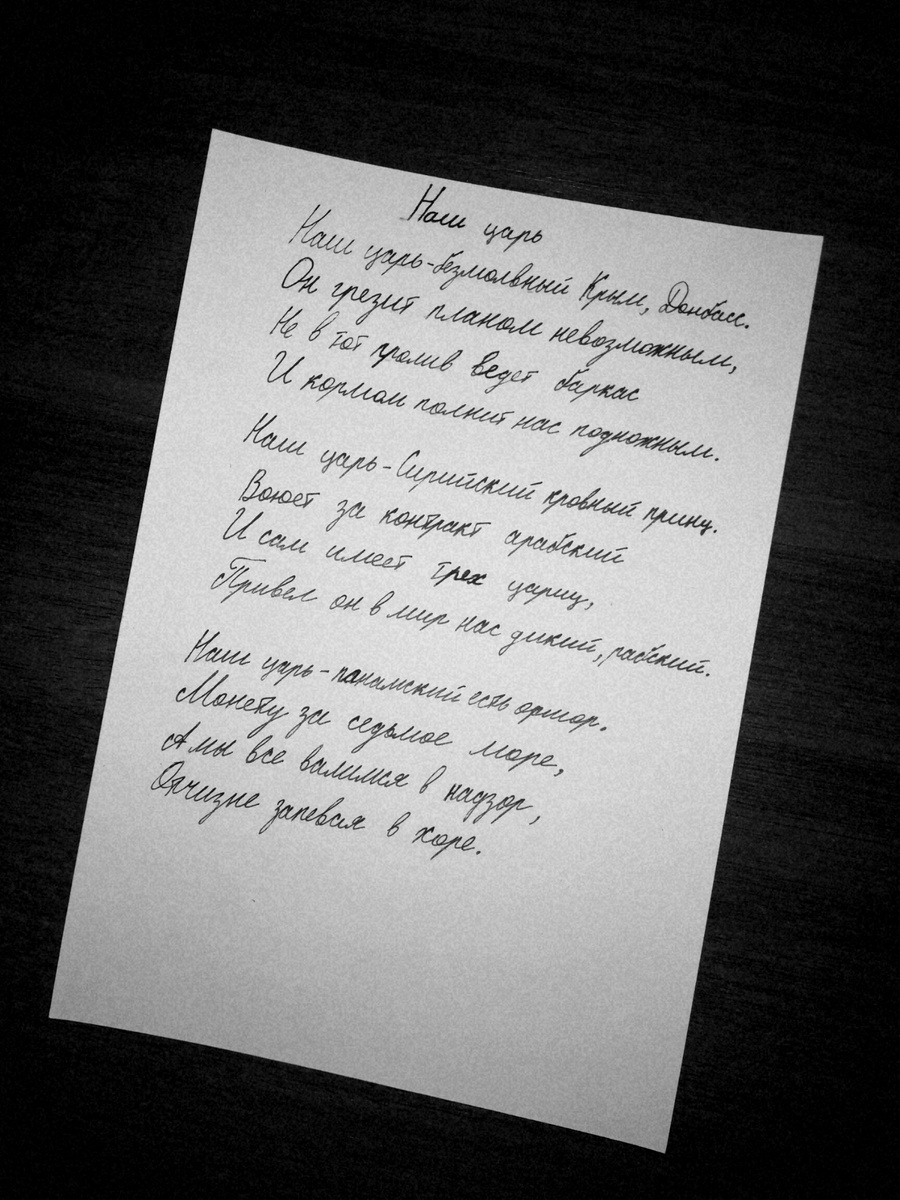 Наш царь
Наш царь-безмолвный Крым, Донбасс.
Он грезит планом невозможным,
Не в тот пролив ведет баркас
И кормом полнит нас подножным.
Наш царь-Сирийский кровный принц.
Воюет за контракт арабский
И сам имеет трех цариц,
Привел он в мир нас дикий, рабский.
Наш царь-панамский есть оршор.
Монету за седьмое море,
А мы все валимся в надзор,
Отчизне запевая в хоре.